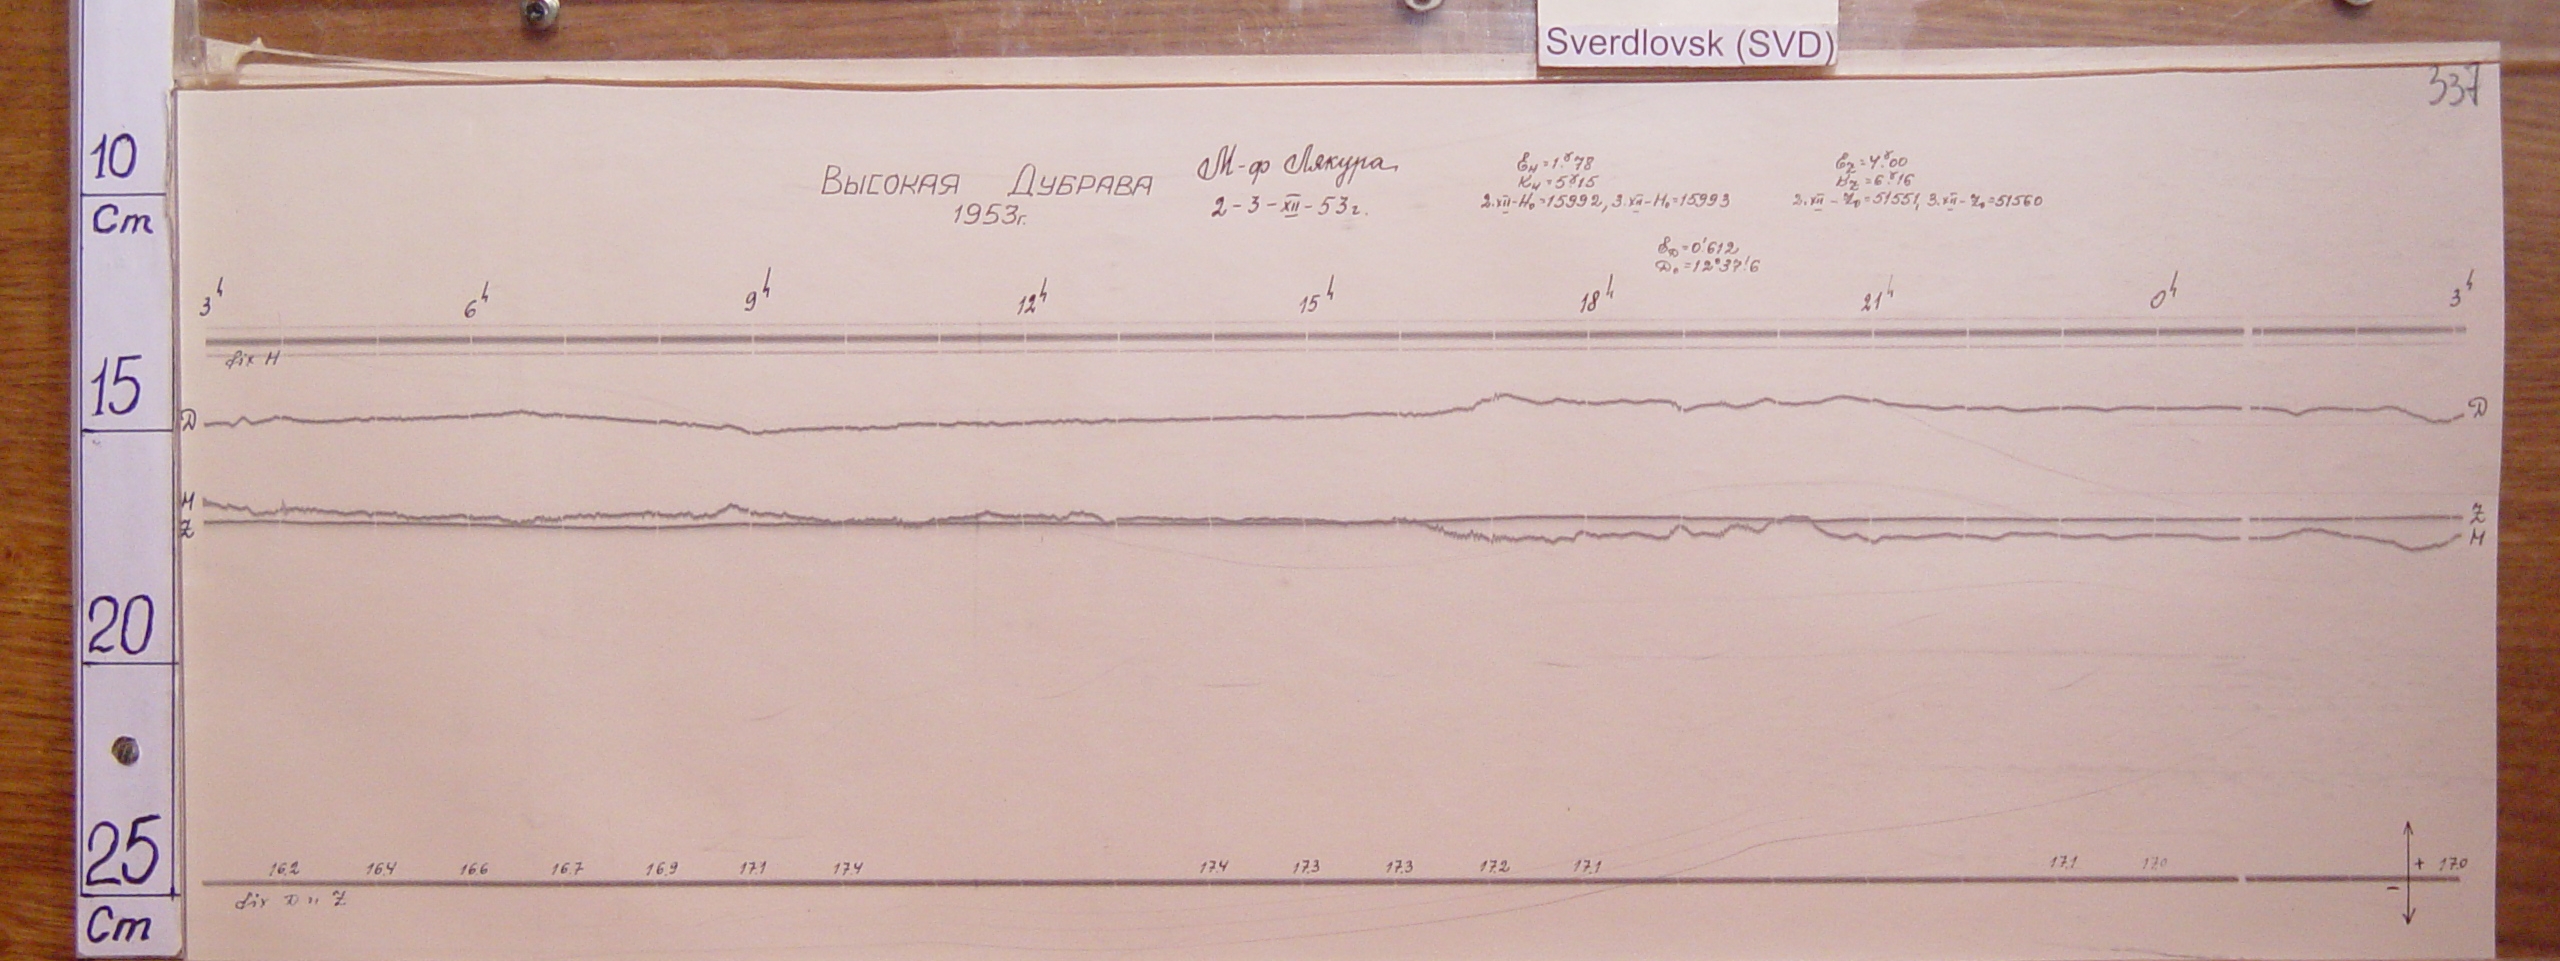 Sverdlovsk (SVD)
337
10
Cm
15
20
25
Cm
Высокая Дубрава
1953г.
М-ф Лякура
2-3-XII-53г.
Ɛн=1.ᵞ78
Kн=5ᵞ15
2.XII-H₀=15992, 3.XII-H₀=15993
Ɛz=4.ᵞ00
Kz=6ᵞ16
2.XII-Z₀=51551, 3.XII-Z₀=51560
ƐD=0!612
D₀=12°37!6
3h 6h 9h 12h 15h 18h 21h 0h 3h
fix H
D D
H Z
Z H
16.2 16.4 16.6 16.7 16.9 17.1 17.4 17.4 17.3 17.3 17.2 17.1 17.1 17.0 + 17.0
-
fix D и Z